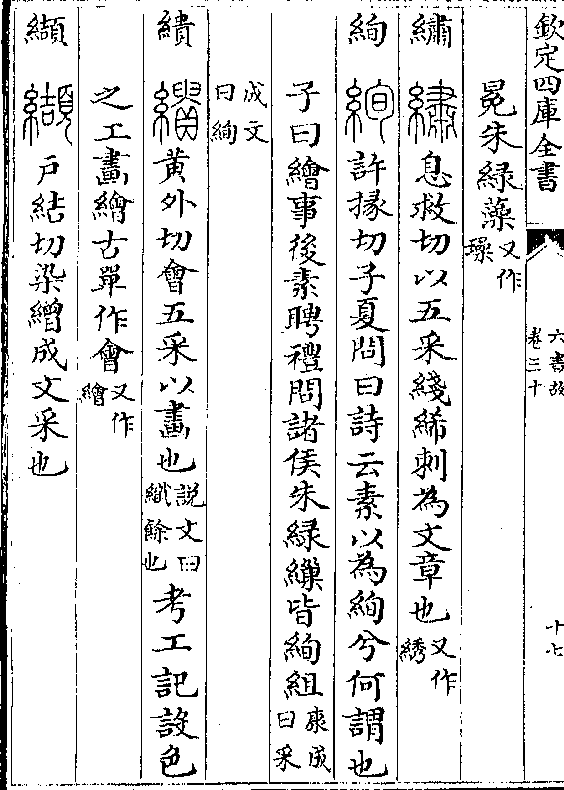 欽定四庫全書
六書故
卷三十
十七
冕朱緑藻又作璪
繡 繡息救切以五采綫絺刺為文章也又作綉
絢 絢許掾切子夏問曰詩云素以為絢兮何謂也
子曰繪事後素聘禮問諸侯朱緑繅皆絢組康成曰采
成文曰絢
繢 繢黄外切會五采以畫也説文曰織餘也考工記設色
之工畫繪古單作會又作繪
纈 纈戸結切染繒成文采也